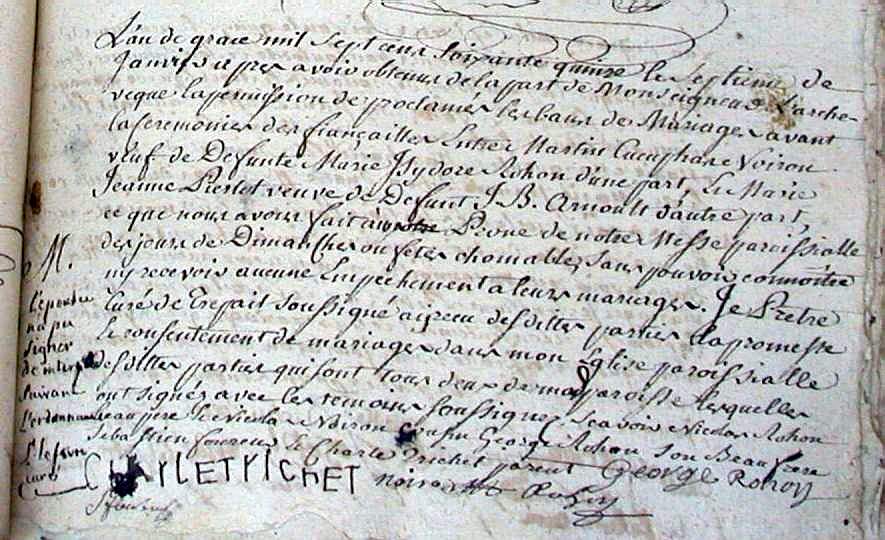 L'an de grace mil sept cens soixante quinze le septieme de
Janvier apres avoir obtenus de la part de Monseigneur L'arche-
veque la permission de proclamer les bans de Mariages avant
la ceremonies des fiançailles Entre Martin Cucuphare Voiron
veuf de Defunte Marie Isydore Rohon d'une part, Et Marie
Jeanne Pierlot veuve de Defunt J. B. Arnoult d'autre part,
ce que nous avons fait au Prone de notre Messe paroissialle
des jours de Dimanches ou fetes chomables, sans pouvoir connoitre
ny recevoir aucune Empechement a leurs mariages. Je Pretre
Curé de Trepait soussigné ai receu des dittes parties la promesse
le consentement de mariages dans mon Eglise paroissialle
des dittes parties qui sont tous deux de ma paroisse lesquelles
ont signés avec les temoins soussignez Scavoir Nicolas Rohon
beau pere Nicolas Voiron cousin George Rohon son Beau frere
Sebastien foureur Charle Trichet parent George ROHON
CHARLET TRICHET Noiron Rohon
M.
L'epouse
na pu
signer
de interpe
suivant
L'ordonnance
T. lefevre
curé